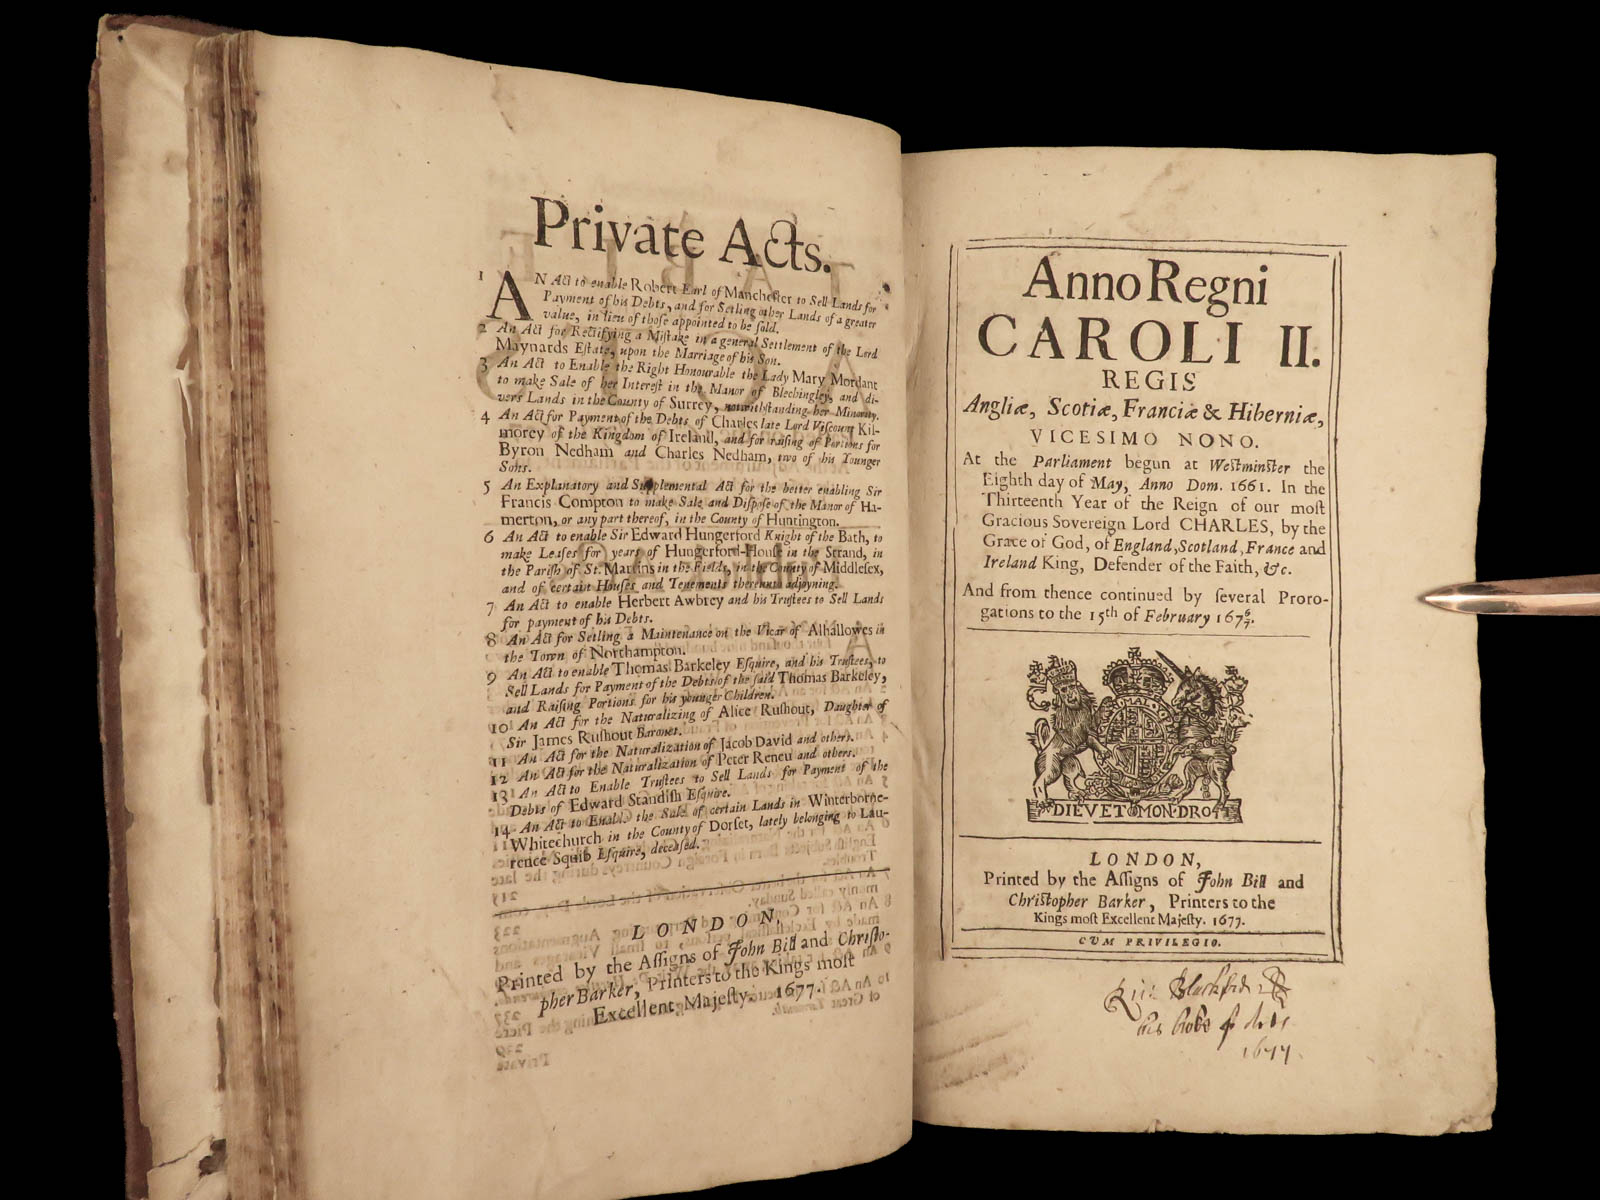 Private Acts.
1 AN Act to enable Robert Earl of Manchester to Sell Lands for
Payment of his Debts, and for Setling other Lands of a greater
value, in lieu of those appointed to be sold.
2 An Act for Rectifying a Mistake in a general Settlement of the Lord
Maynards Estate, upon the Marriage of his Son.
3 An Act to Enable the Right Honourable the Lady Mary Mordant
to make Sale of her Interest in the Manor of Blechingley, and di-
vers Lands in the County of Surrey, notwithstanding her Minority.
4 An Act for Payment of the Debts of Charles late Lord Viscount Kil-
morey of the Kingdom of Ireland, and for raising of Portions for
Byron Nedham and Charles Nedham, two of his Younger
Sons.
5 An Explanatory and Supplemental Act for the better enabling Sir
Francis Compton to make Sale and Dispose of the Manor of Ha-
merton, or any part thereof, in the County of Huntington.
6 An Act to enable Sir Edward Hungerford Knight of the Bath, to
make Leases for years of Hungerford-House in the Strand, in
the Parish of St. Martins in the Fields, in the County of Middlesex,
and of certain Houses and Tenements thereunto adjoyning.
7 An Act to enable Herbert Awbrey and his Trustees to Sell Lands
for payment of his Debts.
8 An Act for Setling a Maintenance on the Vicar of Alhallowes in
the Town of Northampton.
9 An Act to enable Thomas Barkeley Esquire, and his Trustees, to
Sell Lands for Payment of the Debts of the said Thomas Barkeley,
and Raising Portions for his younger Children.
10 An Act for the Naturalizing of Alice Rushout, Daughter of
Sir James Rushout Baronet.
11 An Act for the Naturalization of Jacob David and others.
12 An Act for the Naturalization of Peter Reneu and others.
13 An Act to Enable Trustees to Sell Lands for Payment of the
Debts of Edward Standish Esquire.
14 An Act to Enable the Sale of certain Lands in Winterborne-
Whitechurch in the County of Dorset, lately belonging to Lau-
rence Squib Esquire, deceased.
LONDON,
Printed by the Assigns of John Bill and Christo-
pher Barker, Printers to the Kings most
Excellent Majesty. 1677.
Anno Regni
CAROLI II.
REGIS
Angliæ, Scotiæ, Franciæ & Hiberniæ,
VICESIMO NONO.
At the Parliament begun at Westminster the
Eighth day of May, Anno Dom. 1661. In the
Thirteenth Year of the Reign of our most
Gracious Sovereign Lord CHARLES, by the
Grace of God, of England, Scotland, France and
Ireland King, Defender of the Faith, &c.
And from thence continued by several Proro-
gations to the 15th of February 167 6/7.
DIEV ET MON DROIT
LONDON,
Printed by the Assigns of John Bill and
Christopher Barker, Printers to the
Kings most Excellent Majesty. 1677.
CVM PRIVILEGIO.
his booke
1677